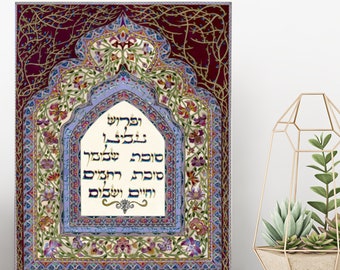 ופרוש
עלינו
סוכת שלומך
סוכת רחמים
וחיים ושלום